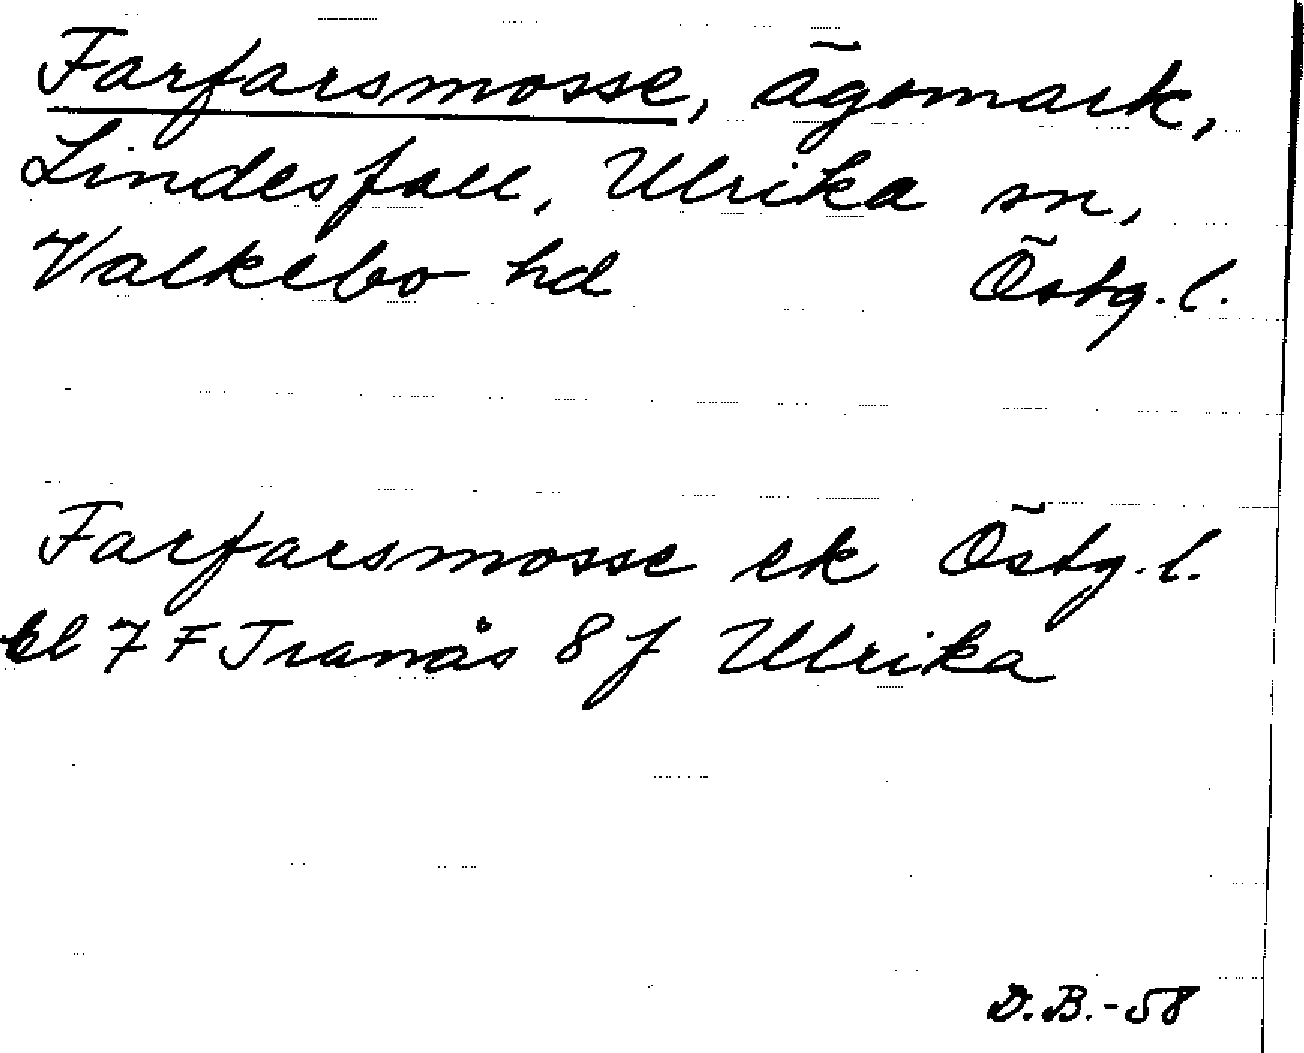 Farfarsmosse, ägomark,
Lindesfall, Ulrika sn,
Valkebo hd Östg. l.
Farfarsmosse ek Östg. l.
bl 7 F Tranås 8 f Ulrika
D.B.-58